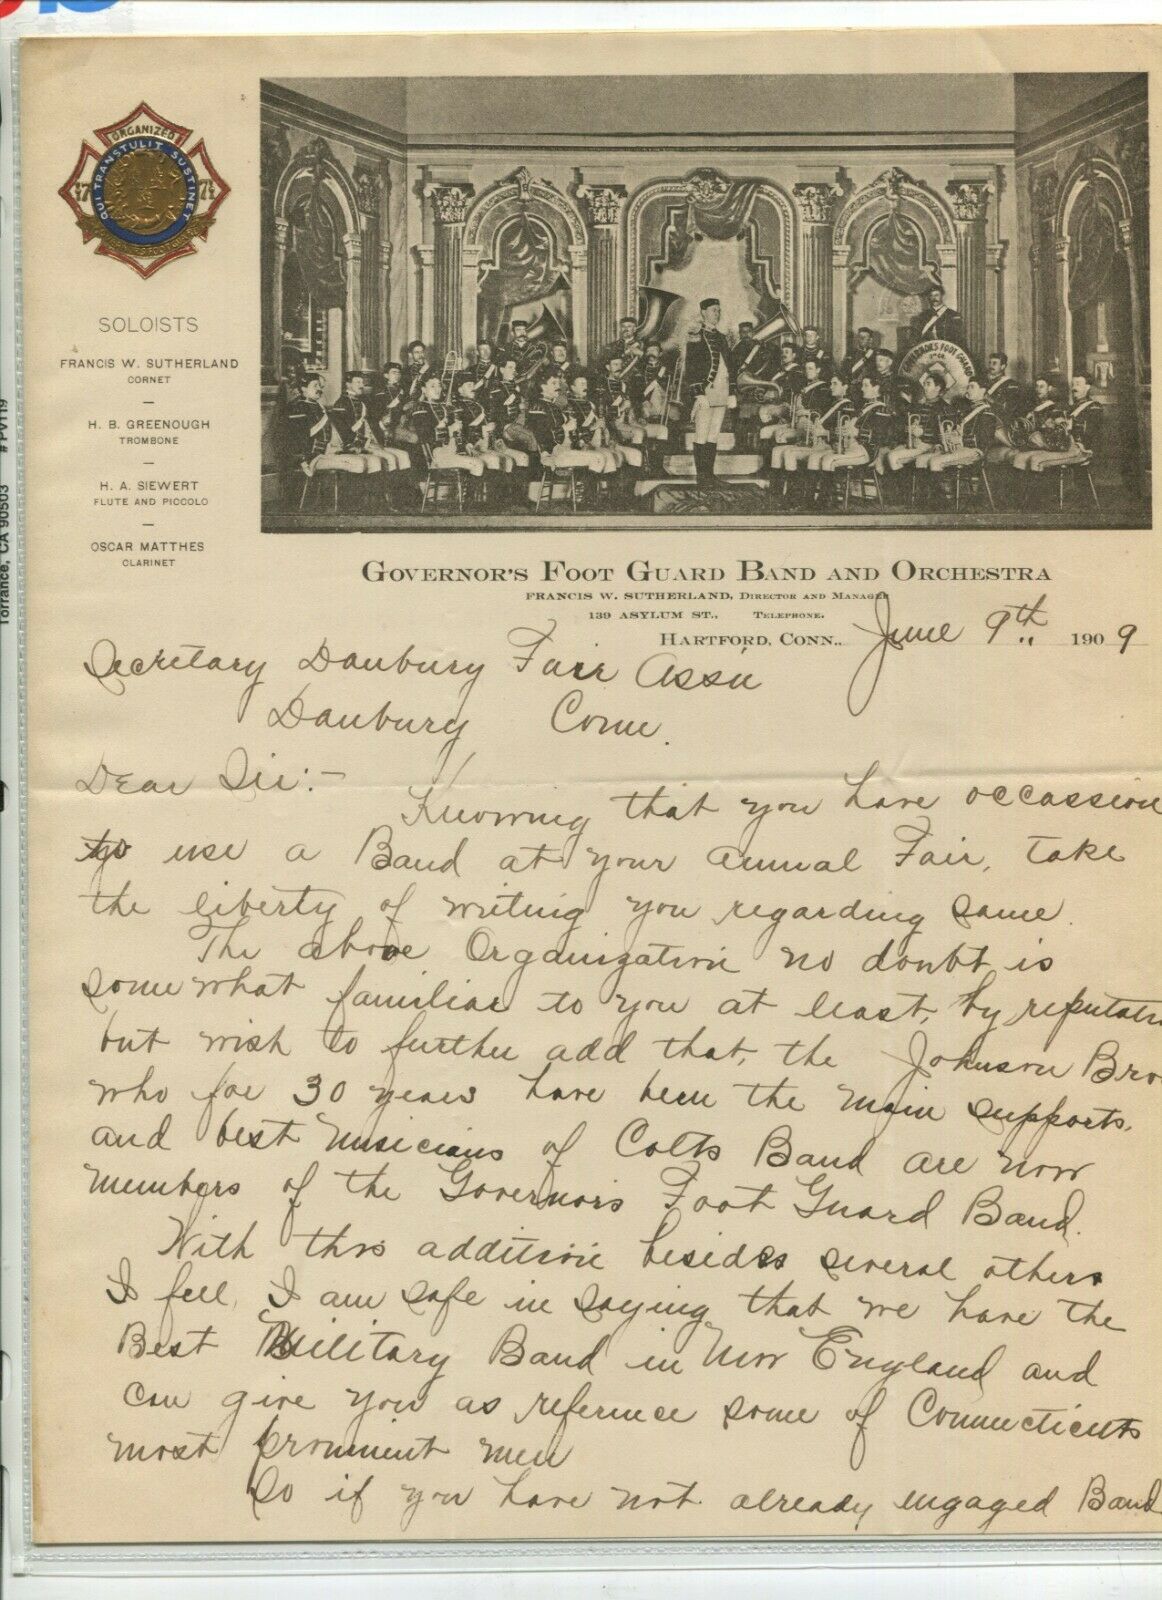 ORGANIZED
1771
QUI TRANSTULIT SUSTINET
SOLOISTS
FRANCIS W. SUTHERLAND
CORNET
H. B. GREENOUGH
TROMBONE
H. A. SIEWERT
FLUTE AND PICCOLO
OSCAR MATTHES
CLARINET
Torrance, CA 90503 #PV119
FOOT GUARD
GOVERNOR'S FOOT GUARD BAND AND ORCHESTRA
FRANCIS W. SUTHERLAND, DIRECTOR AND MANAGER
139 ASYLUM ST., TELEPHONE.
HARTFORD, CONN., June 9th 1909
Secretary Danbury Fair Assn
Danbury Conn.
Dear Sir:-
Knowing that you have occassion
to use a Band at your annual Fair, take
the liberty of writing you regarding same.
The above Organization no doubt is
somewhat familiar to you at least, by reputation
but wish to further add that, the Johnson Bro
who for 30 years have been the main supports.
and best musicians of Colts Band are now
members of the Governors Foot Guard Band.
With this addition besides several others
I feel, I am safe in saying that we have the
Best Military Band in New England and
can give you as reference some of Connecticuts
most prominent men
So if you have not already engaged Band